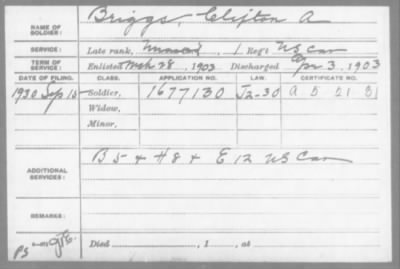 NAME OF SOLDIER: Briggs, Clifton A
SERVICE: Late rank, 1, Reg't US Cav
TERM OF SERVICE: Enlisted Mch 28, 1903 Discharged Apr 3, 1903
DATE OF FILING. CLASS. APPLICATION NO. LAW. CERTIFICATE NO.
1930 Sep 15 Soldier, 1677130 J2-30 A 5 21 31
Widow,
Minor,
ADDITIONAL SERVICES: B 5 + H 8 + E 12 US Cav
REMARKS:
Died, 1, at
PS